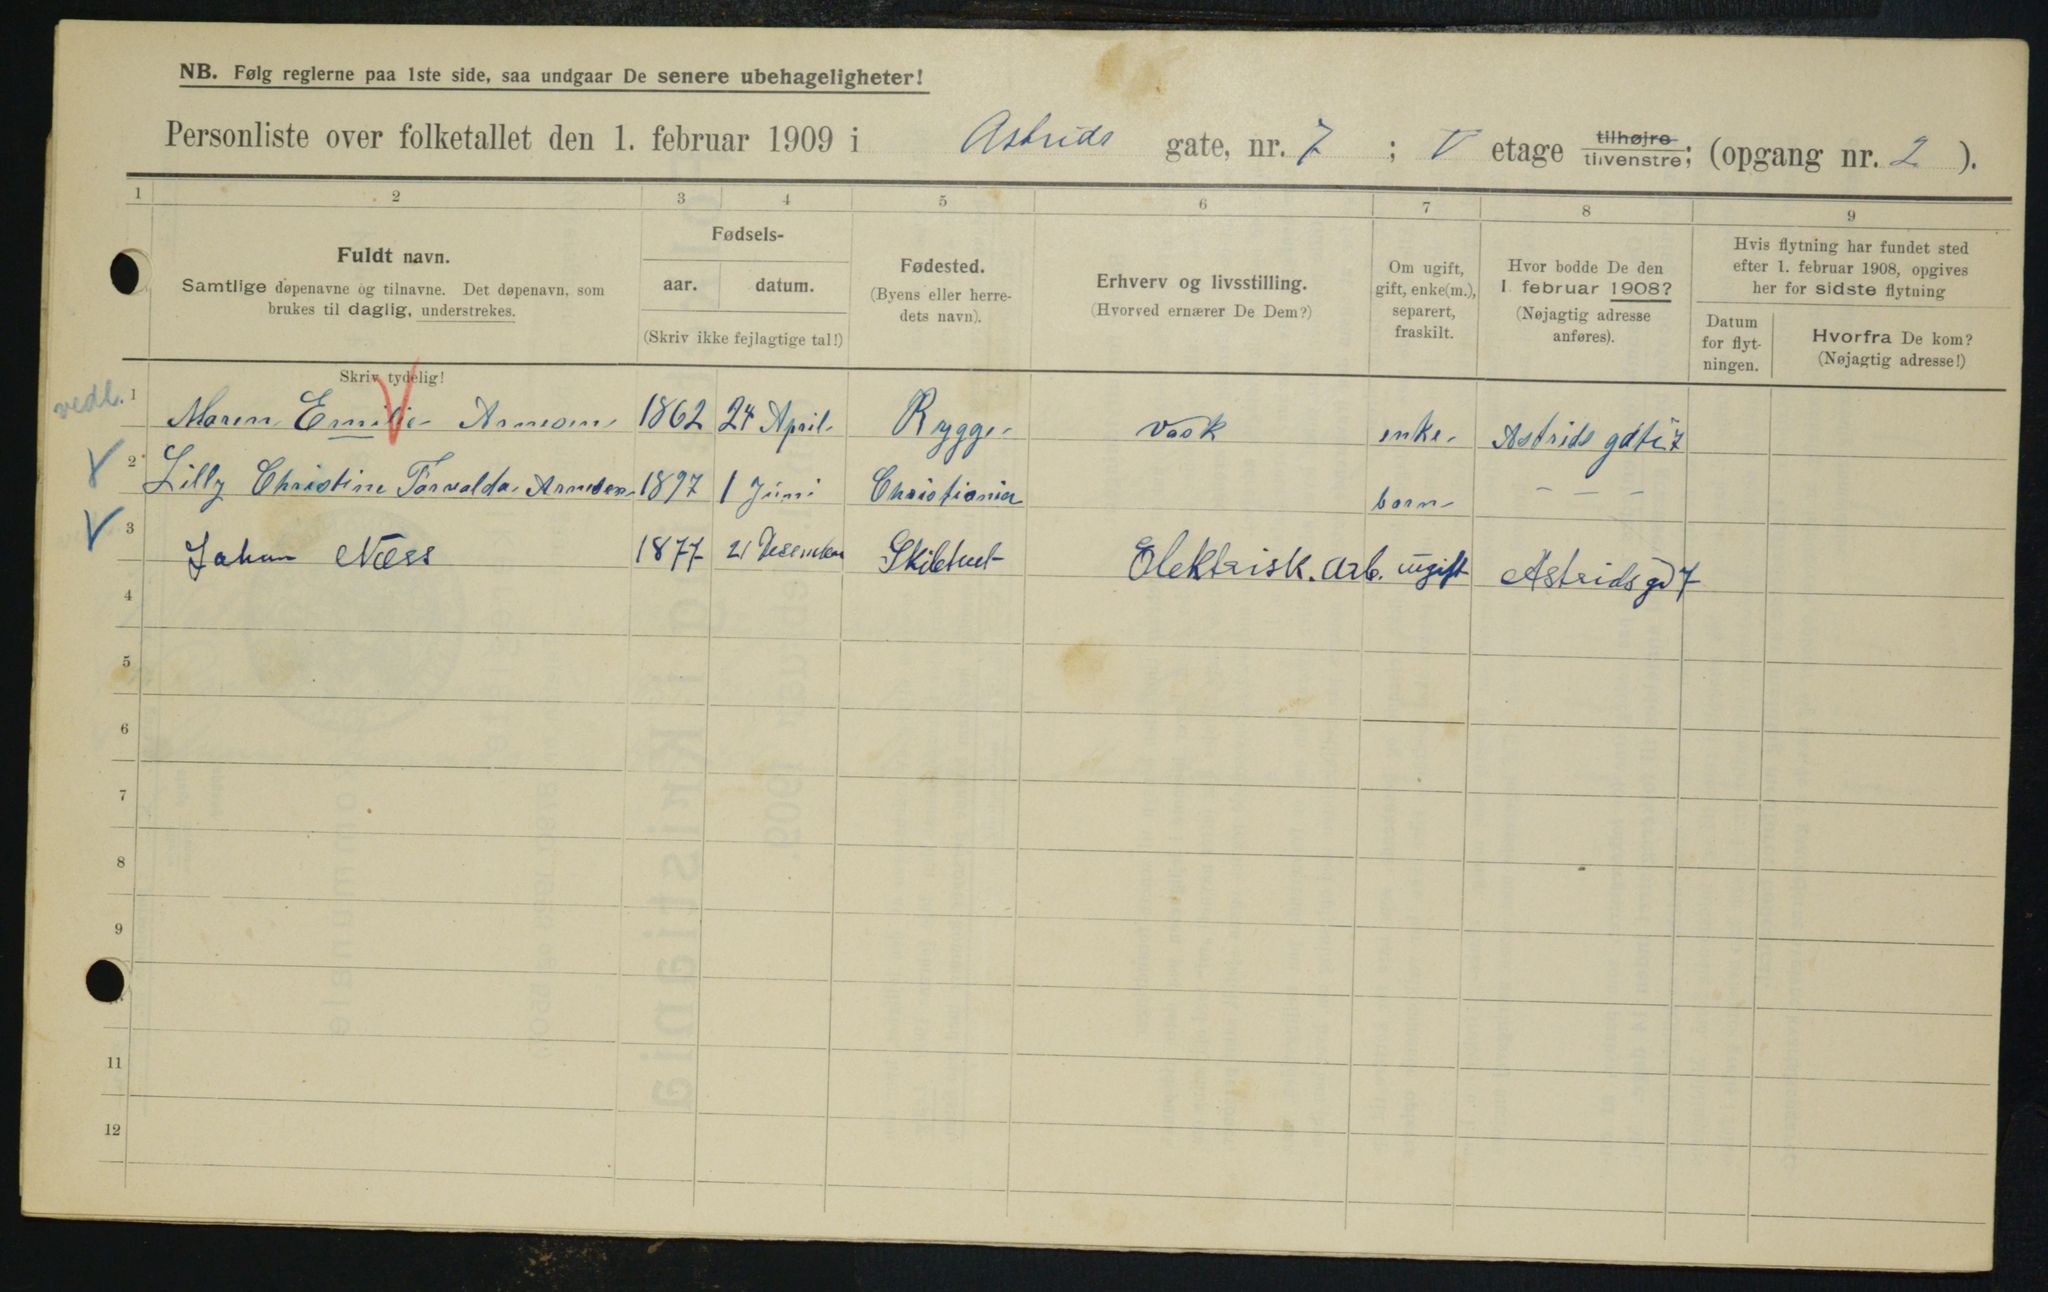 NB. Følg reglerne paa 1ste side, saa undgaar De senere ubehageligheter!
Personliste over folketallet den 1. februar 1909 i Astrids gate, nr. 7 ; V etage tilhøjre tilvenstre; (opgang nr. 2 ).
1 2 3 4 5 6 7 8 9
Fuldt navn.
Samtlige døpenavne og tilnavne. Det døpenavn, som
brukes til daglig, understrekes.
Skriv tydelig!
Fødsels-
aar. datum.
(Skriv ikke fejlagtige tal!)
Fødested.
(Byens eller herre-
dets navn).
Erhverv og livsstilling.
(Hvorved ernærer De Dem?)
Om ugift,
gift, enke(m.),
separert,
fraskilt.
Hvor bodde De den
1 februar 1908?
(Nøjagtig adresse
anføres).
Hvis flytning har fundet sted
efter 1. februar 1908, opgives
her for sidste flytning
Datum
for flyt-
ningen.
Hvorfra De kom?
(Nøjagtig adresse!)
vedl. 1 Maren Emilie Arnesen 1862 24 April Rygge vask enke Astrids gate 7
2 Lilly Christine Torvalda Arnesen 1897 1 Juni Christiania barn – – –
3 Johan Næss 1877 21 Desember Skibtvet Elektrisk. arb. ugift Astrids gd 7
4
5
6
7
8
9
11
12